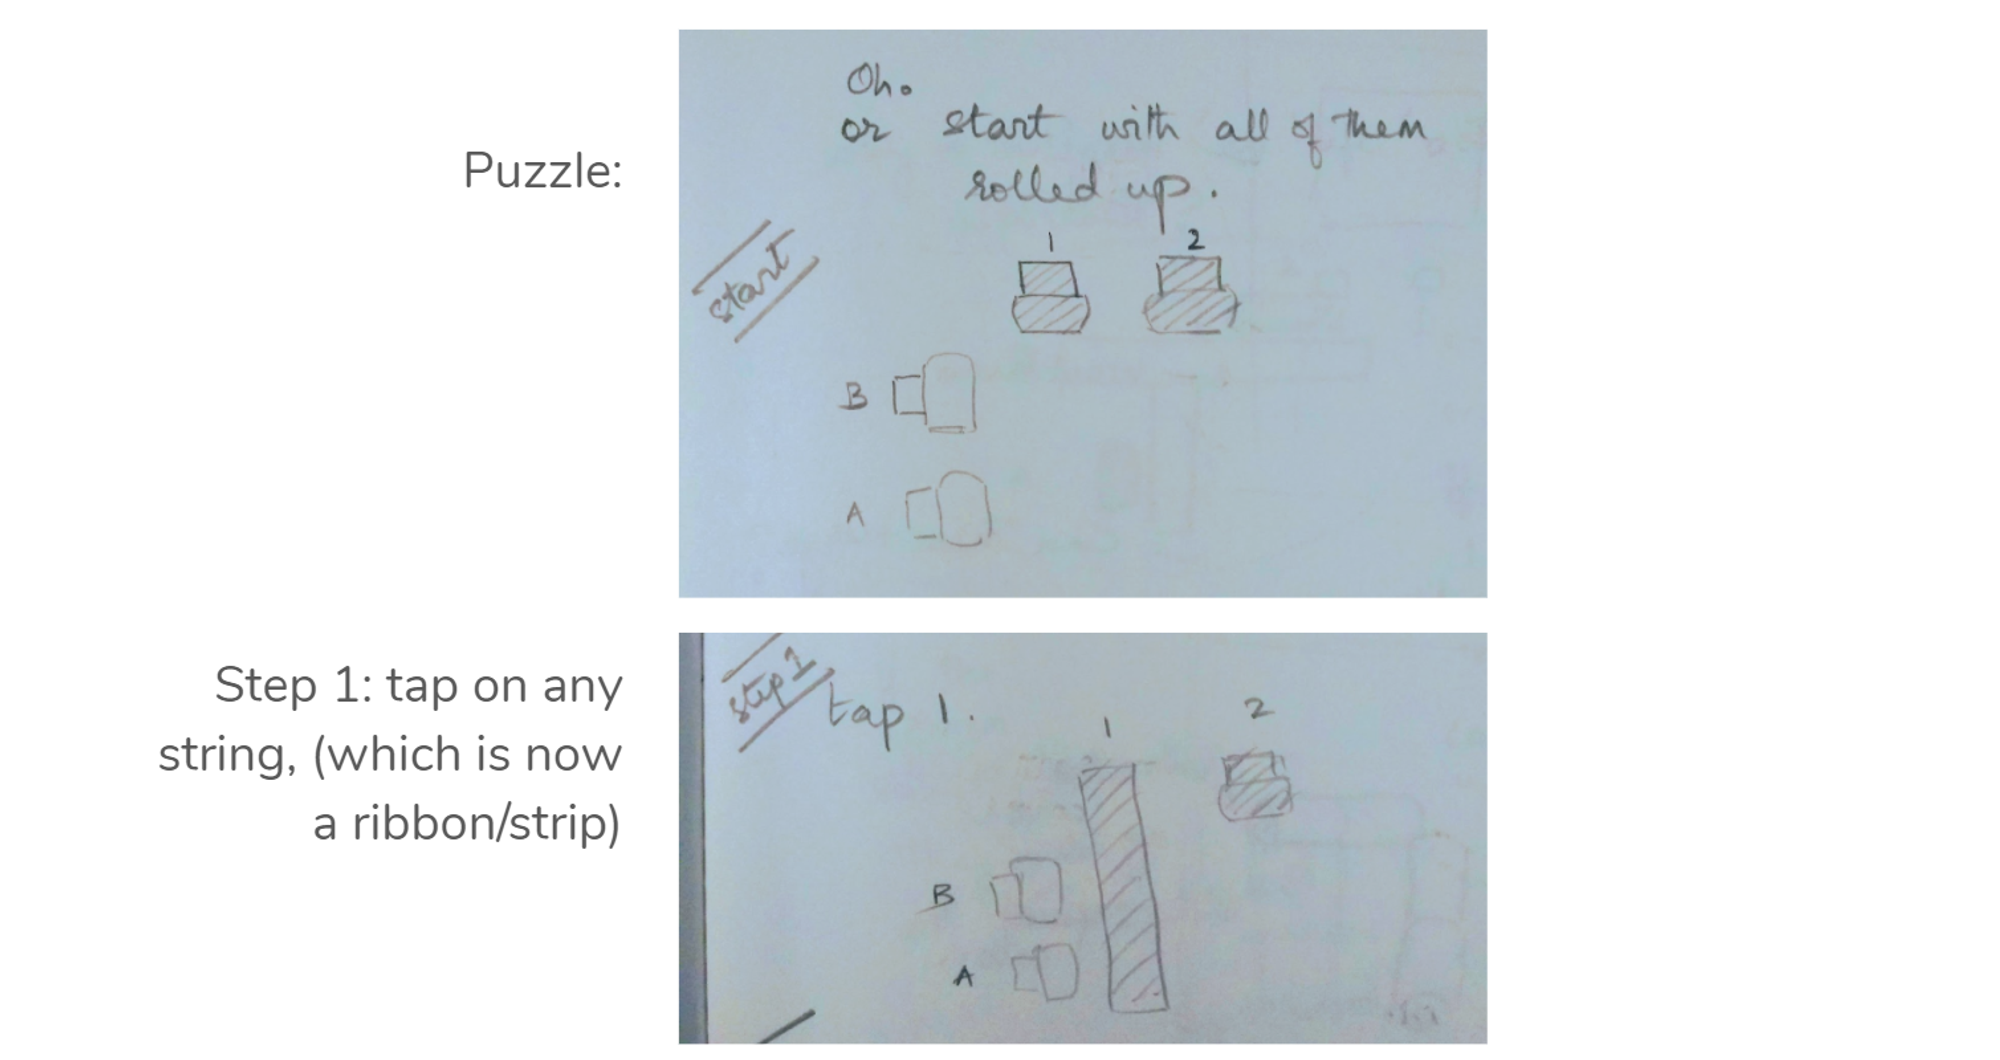 Puzzle:
Oh.
or start with all of them
rolled up.
start
1 2
B
A
Step 1: tap on any
string, (which is now
a ribbon/strip)
step 1
tap 1.
1 2
B
A